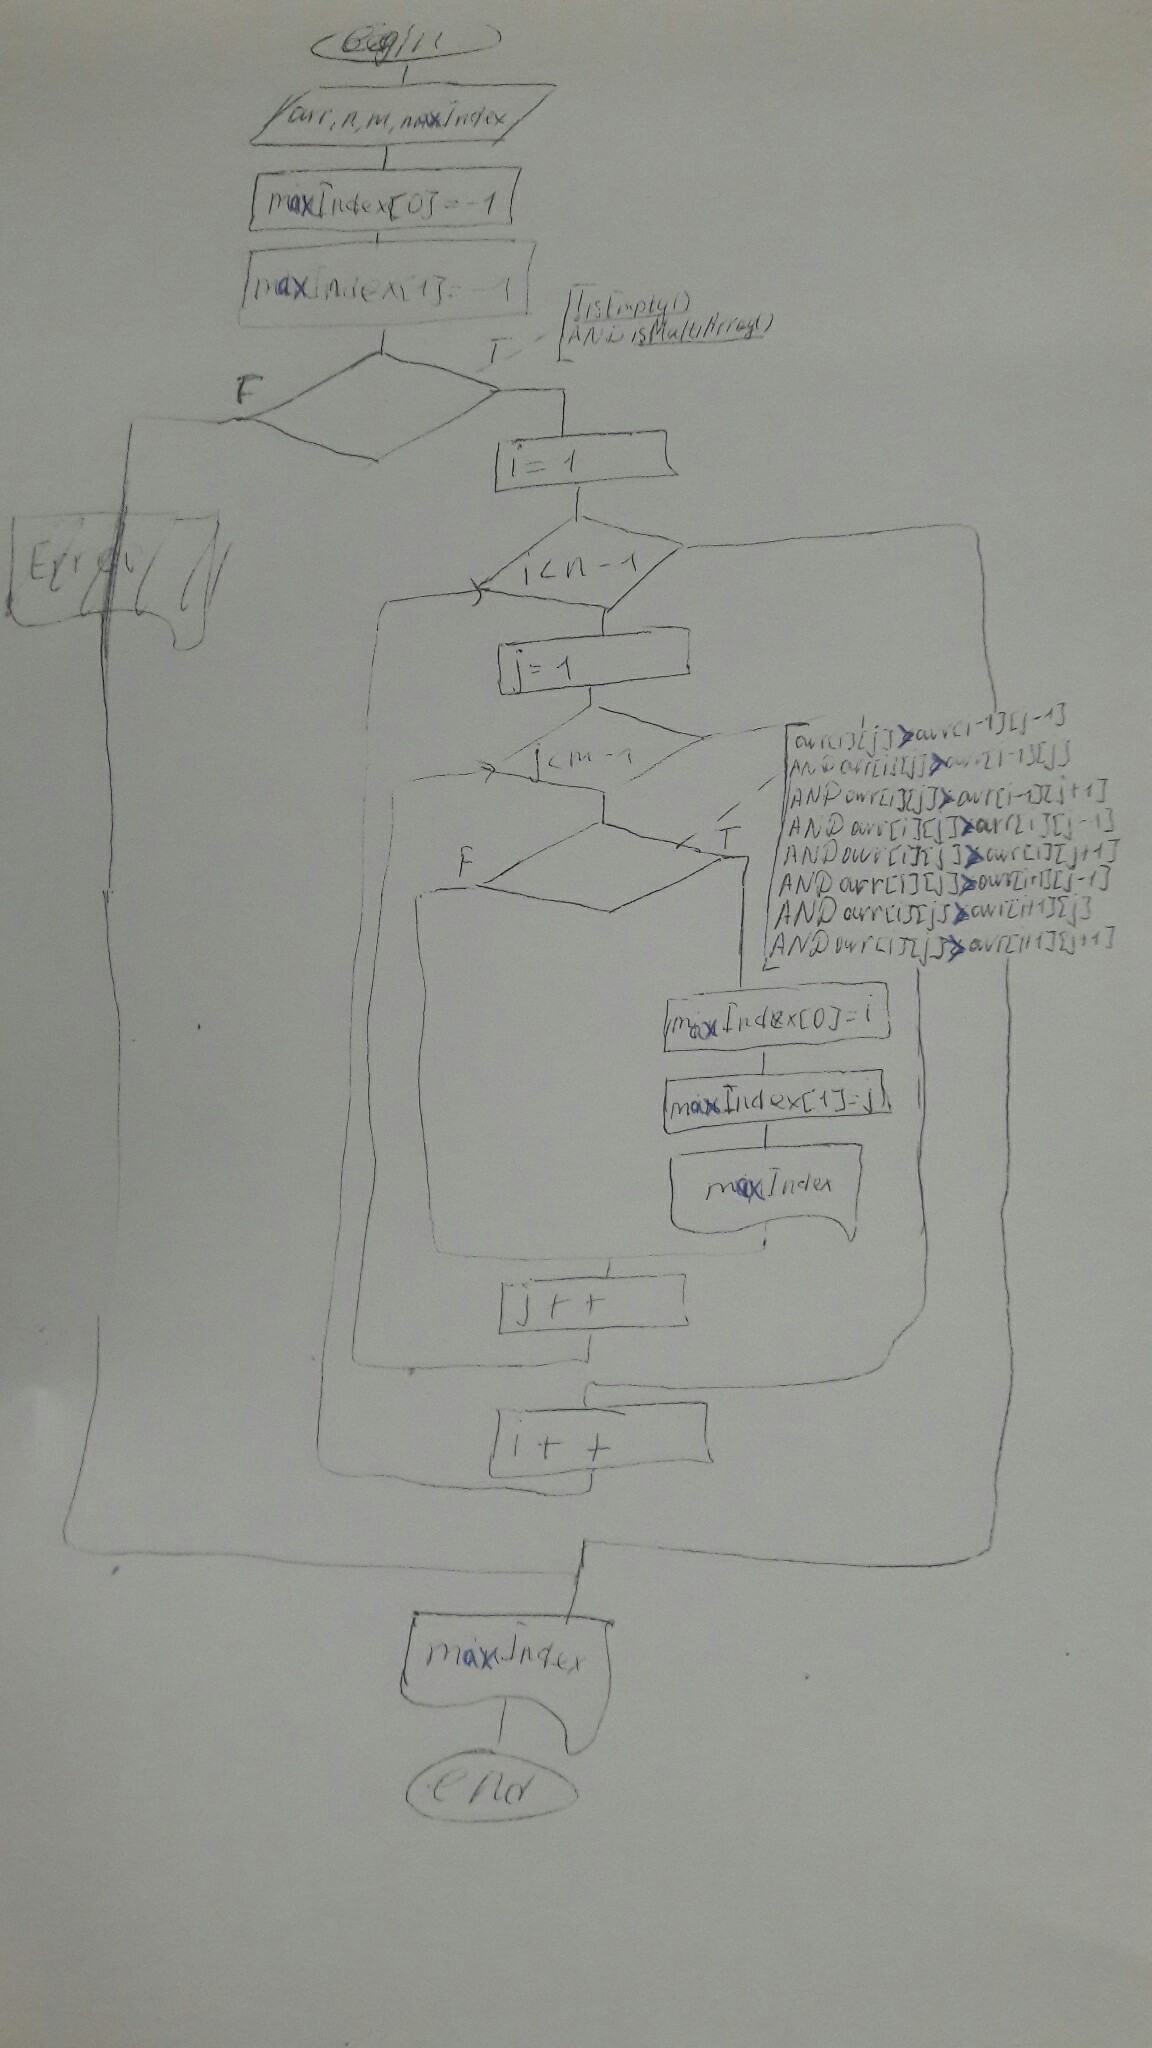 Begin
arr, n, m, maxIndex
maxIndex[0]=-1
maxIndex[1]=-1
!isEmpty()
AND isMultiArray()
T
F
i = 1
Error
i<n-1
j=1
j<m-1
arr[i][j]>arr[i-1][j-1]
AND arr[i][j]>arr[i-1][j]
AND arr[i][j]>arr[i-1][j+1]
AND arr[i][j]>arr[i][j-1]
AND arr[i][j]>arr[i][j+1]
AND arr[i][j]>arr[i+1][j-1]
AND arr[i][j]>arr[i+1][j]
AND arr[i][j]>arr[i+1][j+1]
T
F
maxIndex[0]=i
maxIndex[1]=j
maxIndex
j++
i++
maxIndex
end